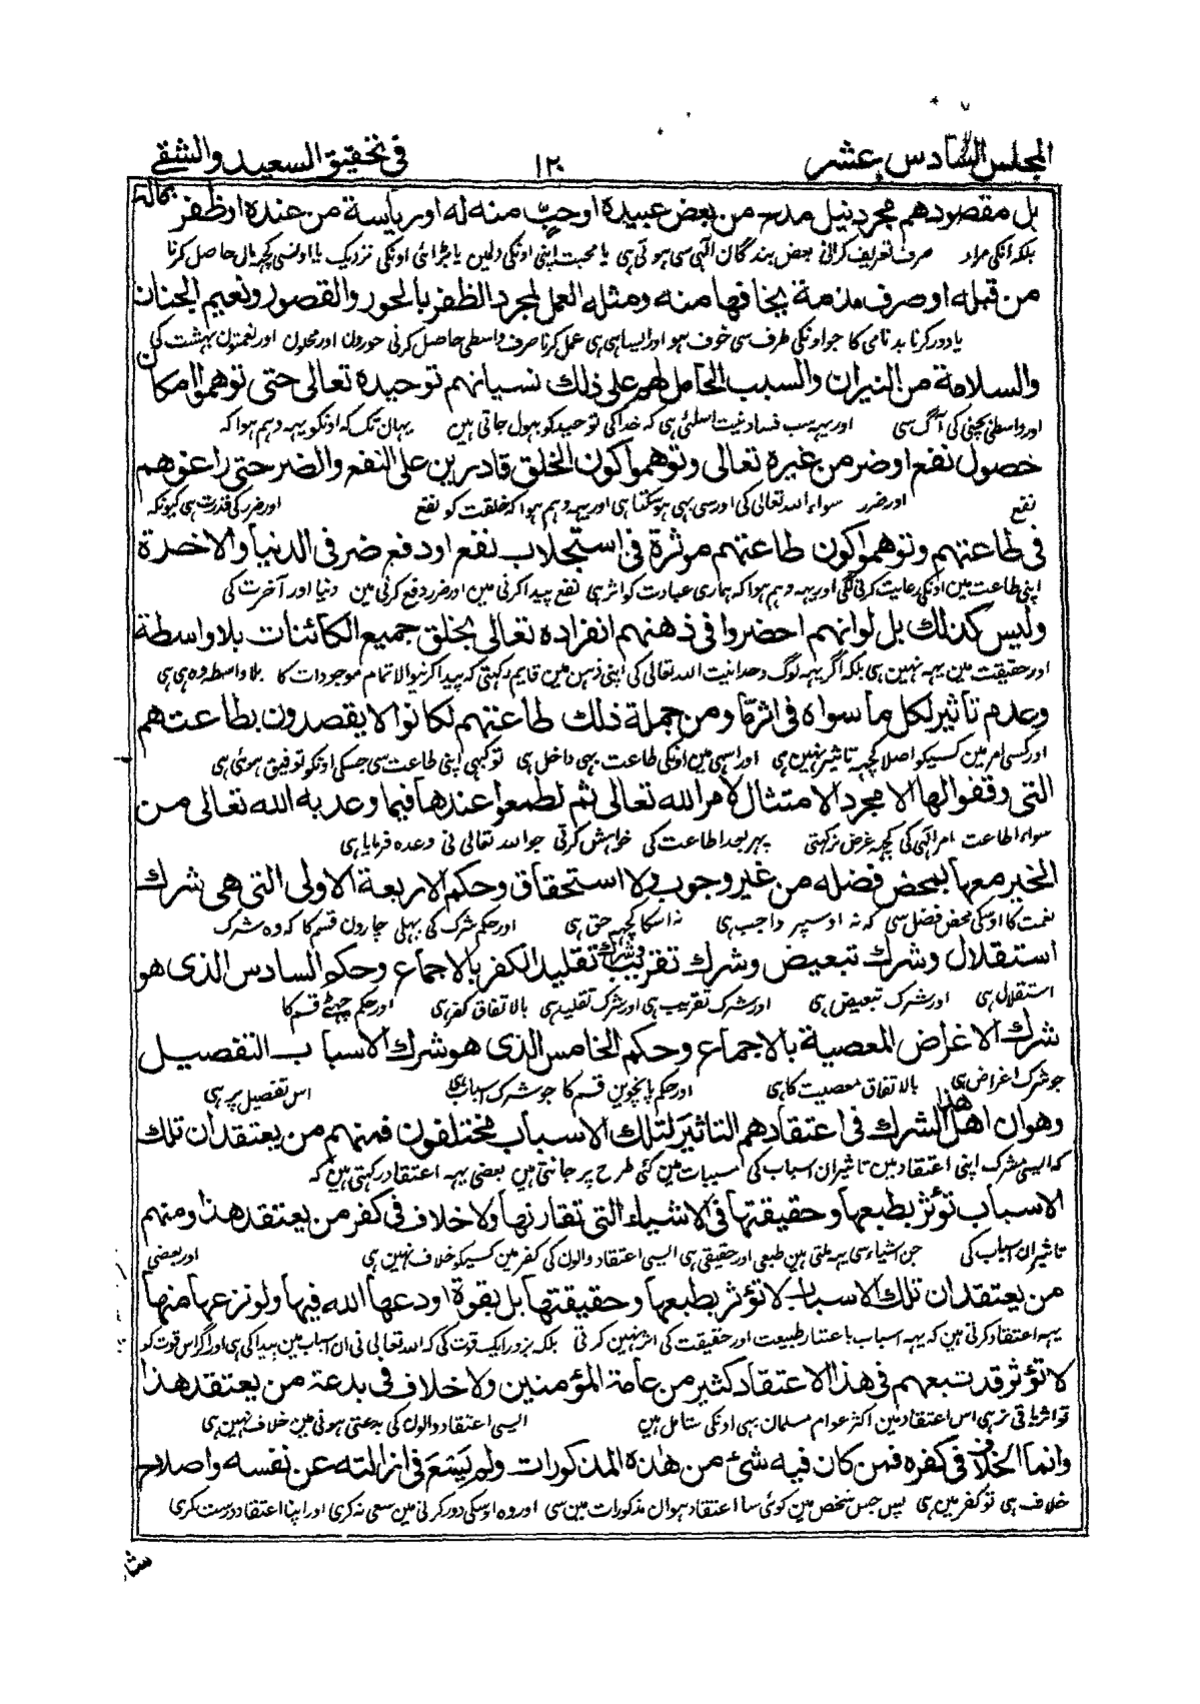 المجلس السادس عشر ١٢٠ فی تحقیق السعید والشقے
بل مقصودهم مجرد نیل مدح من بعض عبیده او حبّ منه له او ریاسة من عنده او ظفر بماله
بلکہ انکی مراد صرف تعریف کرانی بعض بندگان الٰہی سی ہوتی ہی یا محبت اپنی اونکی دلمین یا بڑائی اونکی نزدیک یا اونسی کچھ مال حاصل کرنا
من قبله او صرف مذمة یخافها منه ومثله العمل لمجرد الظفر بالحور والقصور ونعیم الجنان
یا دور کرنا بدنامی کا جو اونکی طرف سی خوف ہو اور ایسا ہی ہی عمل کرنا صرف واسطی حاصل کرنی حورون اور محلون اور نعمتون بہشت کی
والسلامة من النیران والسبب الحامل لهم علی ذلك نسیانهم توحیده تعالی حتی توهموا امکان
اور واسطی بچنی کی آگ سی اور یہ سبب فساد نیت اسلئی ہی کہ خدا کی توحید کو بھول جاتی ہین یہان تک کہ اونکو یہہ وہم ہوا کہ
حصول نفع او ضر من غیره تعالی وتوهموا کون الخلق قادرین علی النفع والضر حتی راعوهم
نفع اور ضرر سواء اللہ تعالی کی اور سی بھی ہو سکتا ہی اور یہہ وہم ہوا کہ خلقت کو نفع اور ضرر کی قدرت ہی کیونکہ
فی طاعتهم وتوهموا کون طاعتهم موثرة فی استجلاب نفع او دفع ضر فی الدنیا والاخرة
اپنی طاعت مین اونکی رعایت کرنی لگی اور یہہ وہم ہوا کہ ہماری عبادت کو اثر ہی نفع پیدا کرنی مین اور ضرر دفع کرنی مین دنیا اور آخرت کی
ولیس کذلك بل لو انهم احضروا فی ذهنهم انفراده تعالی بخلق جمیع الکائنات بلا واسطة
اور حقیقت مین یہہ نہین ہی بلکہ اگر یہہ لوگ وحدانیت اللہ تعالی کی اپنی ذہن مین قایم رکہتی کہ پیدا کرنیوالا تمام موجودات کا بلا واسطہ وہ ہی ہی
وعدم تأثیر لکل ما سواه فی اثرما ومن جملة ذلك طاعتهم لکانوا لا یقصدون بطاعتهم
اور کسی امر مین کسیکو اصلا کچھہ تاثیر نہین ہی اور اسی مین اونکی طاعت بھی داخل ہی تو کبھی اپنی طاعت سی جسکی اونکو توفیق ہوئی ہی
التی وقفوا لها الا مجرد الامتثال لامر الله تعالی ثم لطمعوا عندها فیما وعد به الله تعالی من
سواء اطاعت امر الٰہی کی کچھہ غرض نرکہتی پھر بعد اطاعت کی خواہش کرتی جو اللہ تعالی نی وعدہ فرمایا ہی
الخیر معها بمحض فضله من غیر وجوب ولا استحقاق وحکم الاربعة الاولی التی هی شرك
نعمت کا اوسکی محض فضل سی کہ نہ اوسپر واجب ہی نہ اسکا کچھ حق ہی اور حکم شرک کی پہلی چارون قسم کا کہ وہ شرک
استقلال وشرك تبعیض وشرك تقریب وشرك تقلید الکفر بالاجماع وحکم السادس الذی هو
استقلال ہی اور شرک تبعیض ہی اور شرک تقریب ہی اور شرک تقلید ہی بالاتفاق کفر ہی اور حکم چھٹے قسم کا
شرك الاغراض المعصیة بالاجماع وحکم الخامس الذی هو شرك الاسباب التفصیل
جو شرک اغراض ہی بالاتفاق معصیت کا ہی اور حکم پانچوین قسم کا جو شرک اسباب ہی اس تفصیل پر ہی
وهو ان اهل هذا الشرك فی اعتقادهم التاثیر لتلك الاسباب مختلفون فمنهم من یعتقد ان تلك
کہ ایسی مشرک اپنی اعتقاد مین تاثیر ان اسباب کی مسببات مین کئی طرح پر جانتی ہین بعضی یہہ اعتقاد رکہتی ہین کہ
الاسباب تؤثر بطبعها وحقیقتها فی الاشیاء التی تقارنها ولا خلاف فی کفر من یعتقد هذا ومنهم
تاثیر ان اسباب کی جن اشیاء سی یہ ملتی ہین طبعی اور حقیقی ہی ایسی اعتقاد والون کی کفر مین کسیکو خلاف نہین ہی اور بعضی
من یعتقد ان تلك الاسباب لا تؤثر بطبعها وحقیقتها بل بقوة اودعها الله فیها ولو نزعها منها
یہہ اعتقاد کرتی ہین کہ یہہ اسباب باعتبار طبیعت اور حقیقت کی اثر نہین کرتی بلکہ بزور ایک قوت کی کہ اللہ تعالی نی ان اسباب مین پیدا کی ہی اور اگر اس قوت کو
لا تؤثر قد تبعهم فی هذا الاعتقاد کثیر من عامة المؤمنین ولا خلاف فی بدعة من یعتقد هذا
تو اثر باقی نرہی اس اعتقاد مین اکثر عوام مسلمان بھی اونکی شامل ہین ایسی اعتقاد والون کی بدعتی ہونی مین خلاف نہین ہی
وانما الخلاف فی کفره فمن کان فیه شیٔ من هذه المذکورات ولم یَسْعَ فی ازالته عن نفسه واصلاح
خلاف ہی تو کفر مین ہی پس جس شخص مین کوئی سا اعتقاد ہو ان مذکورات مین سی اور وہ اوسکی دور کرنی مین سعی نہ کری اور اپنا اعتقاد درست نکری